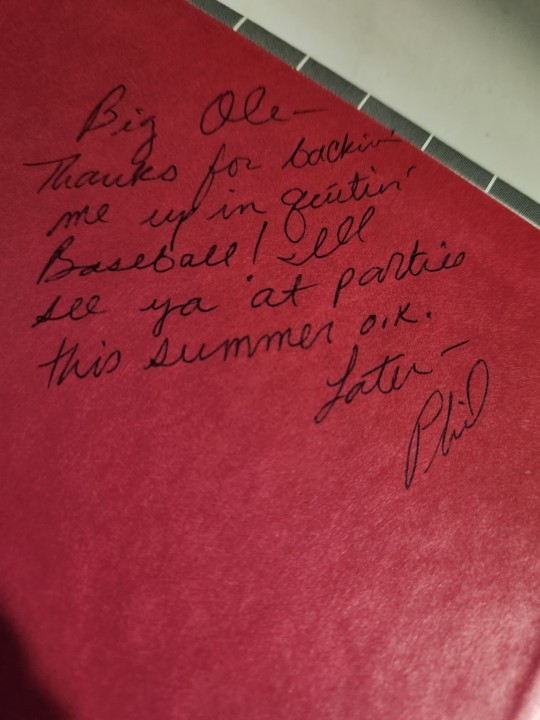 Big Ole—
Thanks for backin'
me up in quitin'
Baseball! I'll
see ya at parties
this summer o.k.
Later—
Phil